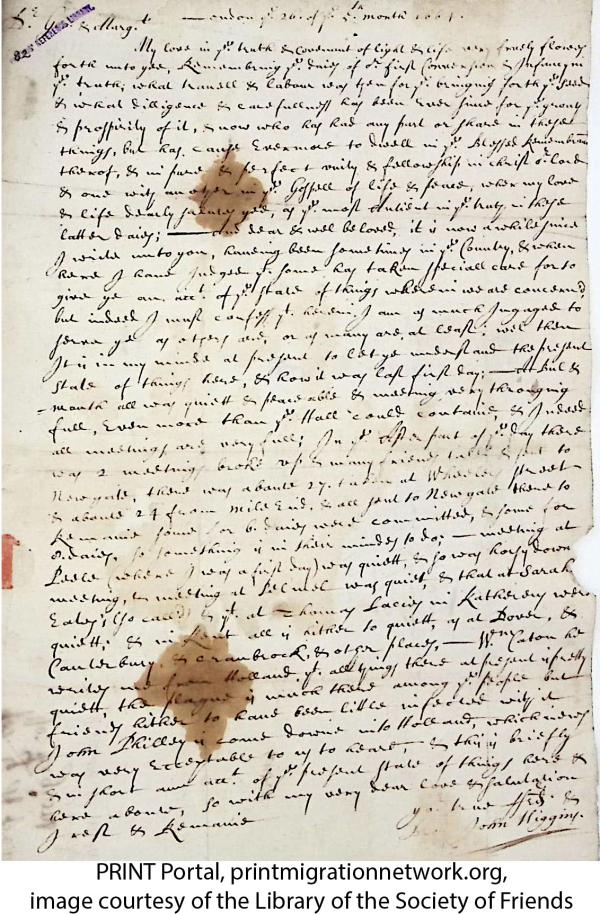 G: & Marg:t London ye 26: of ye 5th month 1664.
My love in ye truth & Covenant of light & life very freely flowes
forth unto yee, Remembring ye daies of or first Conversion & Infancy in
ye truth; what travell & labour was then for ye bringing forth ye seed
& what dilligence & carefullness has been Ever since for ye growth
& prosperity of it, & now who has had any part or share in these
things, but has Cause Evermore to dwell in ye Blessed Remembrance
therof, & in pure & perfect unity & fellowship in christ or Lord
& one with another in ye Gospell of life & peace, wher my love
& life dearly salutes yee, as ye most Antient in ye truth in these
latter daies; and dear & well beloved, it is now a while since
I write unto you, haveing been sometimes in ye Country, & when
here I have Judged yt some has taken speciall care for to
give ye an acct: of ye state of things wherein we are concern'd
but indeed I must confess yt herein I am as much Ingaged to
serve ye as others are, or as many are, at least: well then
It is in my minde at present to let ye understand the present
state of things here, & how it was last first day; at Bull &
-month all was quiett & peaceable & meeting very thronging
full, Even more than ye Hall could containe, & Indeed
all meetings are very full; In ye after part of ye day there
was 2 meetings broke up & many friends taken & sent to
Newgate, there was aboute 27. taken at Wheeler street
& aboute 24 from Mile End, & all sent to Newgate there to
Remaine some for 6: daies were committed, & some for
daies, so something is in their mindes to do; meeting at
Peele (where I was a first day) was quiett, & so was horsydown
meeting, meeting at Pelmel was quiet, & that at Sarah
(so called) & yt at Thomas Lacies in Katherens were
quiett; & in Kent all is hither to quiett, as at Dover, &
Canterbury & Cranbrook, & other places, Wm Caton he
writes me from Holland, yt all things there at present is pretty
quiett, the plague is much there among ye people but
friends hither to have been little infected with it
John Philley is come downe into Holland, which newes
was very Acceptable to us to heare & this is briefly
& in short an acct: of ye present state of things here &
here aboute, so with my very dear love & salutation
I rest & Remaine yr true ffrd: &
John Higgins.
PRINT Portal, printmigrationnetwork.org,
image courtesy of the Library of the Society of Friends